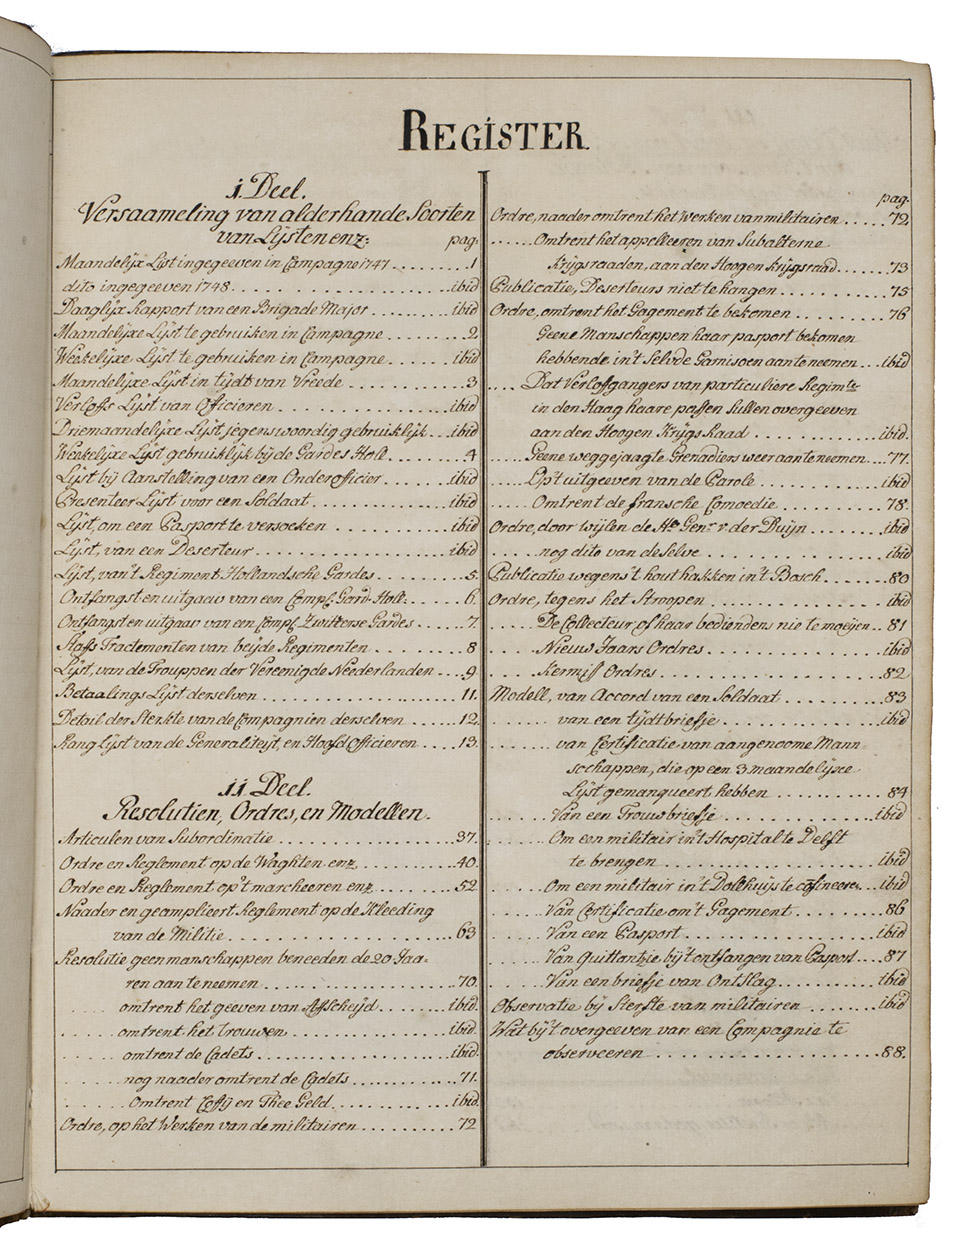 REGISTER
1. Deel.
Versaameling van alderhande Soorten
van Lÿsten enz: pag:
Maandelijx Lijst ingegeeven in Campagne 1747 ........ 1
dito ingegeeven 1748 ........ ibid
Daaglÿx Rapport van een Brigade Major ........ ibid
Maandelÿxe Lÿst te gebruiken in Campagne ........ 2
Weekelÿxe Lÿst te gebruiken in Campagne ........ ibid
Maandelÿxe Lÿst in tÿdt van Vreede ........ 3
Verloffs Lÿst van Officieren ........ ibid
Driemaandelÿxe Lÿst jegenswoordig gebruiklÿk ... ibid
Weekelÿxe Lÿst gebruiklÿk bÿ de Gardes Holl. .... 4
Lÿst bÿ Aanstelling van een Onderofficier ........ ibid
Presenteer Lÿst voor een Soldaat ........ ibid
Lÿst, om een Pasport te versoeken ........ ibid
Lÿst, van een Deserteur ........ ibid
Lÿst, van't Regiment Hollandsche Gardes ........ 5.
Ontfangst en uitgaav van een Comp: Gard: Holl: ...... 6.
Ontfangst en uitgaav van een Comp: Zwitterse Gardes .... 7
Staffs Tractementen van beÿde Regimenten ........ 8
Lÿst, van de Trouppen der Vereenigde Neederlanden .... 9.
Betaalings Lÿst derselven ........ 11.
Detail der Sterkte van de Compagnien derselven ........ 12.
Rang Lÿst van de Generaliteÿt, en Hoofd Officieren .... 13.
11 Deel.
Resolutien, Ordres, en Modellen.
Articulen van Subordinatie ........ 37.
Ordre en Reglement op de Waghten enz ........ 40.
Ordre en Reglement op't marcheeren enz ........ 52
Naader en geamplieert Reglement op de Kleeding
van de Militie ........ 63
Resolutie geen manschappen beneeden de 20 Jaa-
ren aan te neemen ........ 70.
.... omtrent het geeven van Affscheÿd ........ ibid.
.... omtrent het Trouwen ........ ibid
.... omtrent de Cadets ........ ibid.
.... nog naader omtrent de Cadets ........ 71.
.... Omtrent Coffÿ en Thee Geld ........ ibid.
Ordre, op het Werken van de militairen ........ 72
pag.
Ordre, naader omtrent het Werken van militairen ..... 72.
...... Omtrent het appelleeren van Subalterne
Krÿgsraaden, aan den Hoogen Krÿgsraad ...... 73
Publicatie, Deserteurs niet te hangen ........ 75
Ordre, omtrent het Gagement te bekomen ........ 76
Geene Manschappen haar pasport bekomen
hebbende in't Selvde Garnisoen aan te neemen ... ibid
.... Dat Verloffgangers van particuliere Regimts:
in den Haag haare passen sullen overgeeven
aan den Hoogen Krÿgs Raad ........ ibid.
..... Geene weggejaagte Grenadiers weer aan te neemen .... 77.
..... Op't uitgeeven van de Parole ........ ibid
..... Omtrent de fransche Comoedie ........ 78.
Ordre, door wijlen de Hr Genr: v: der Duÿn ........ ibid
...... nog dito van de Selve ........ ibid
Publicatie wegens't hout hakken in't Bosch ...... 80
Ordre, tegens het Stroopen ........ ibid
..... De Collecteur of haar bediendens nie te moeÿen .. 81
..... Nieuw Jaars Ordres ........ ibid
..... Kermiss Ordres ........ 82
Modell, van Accord van een Soldaat ........ 83
...... van een tÿdtbriefje ........ ibid
...... van Certificatie van aangenoome Mann-
schappen, die op een 3 maandelÿxe
Lÿst gemanqueert hebben ........ 84
...... Van een Trouwbriefje ........ ibid
...... Om een militair in't Hospital te Delft
te brengen ........ ibid
...... Om een militair in't Dolthuÿs te confineeren ... ibid
...... Van Certificatie om't Gagement ........ 86
...... Van een Pasport ........ ibid
...... Van Quittantje bÿ't ontfangen van Pasport .... 87
...... Van een briefje van Ontslag ........ ibid
Observatie bÿ Sterfte van militairen ........ ibid
Wat bÿ't overgeeven van een Compagnie te
observeeren ........ 88.